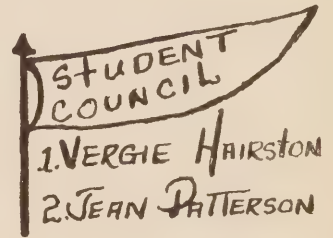 STUDENT
COUNCIL
1. VERGIE HAIRSTON
2. JEAN PATTERSON